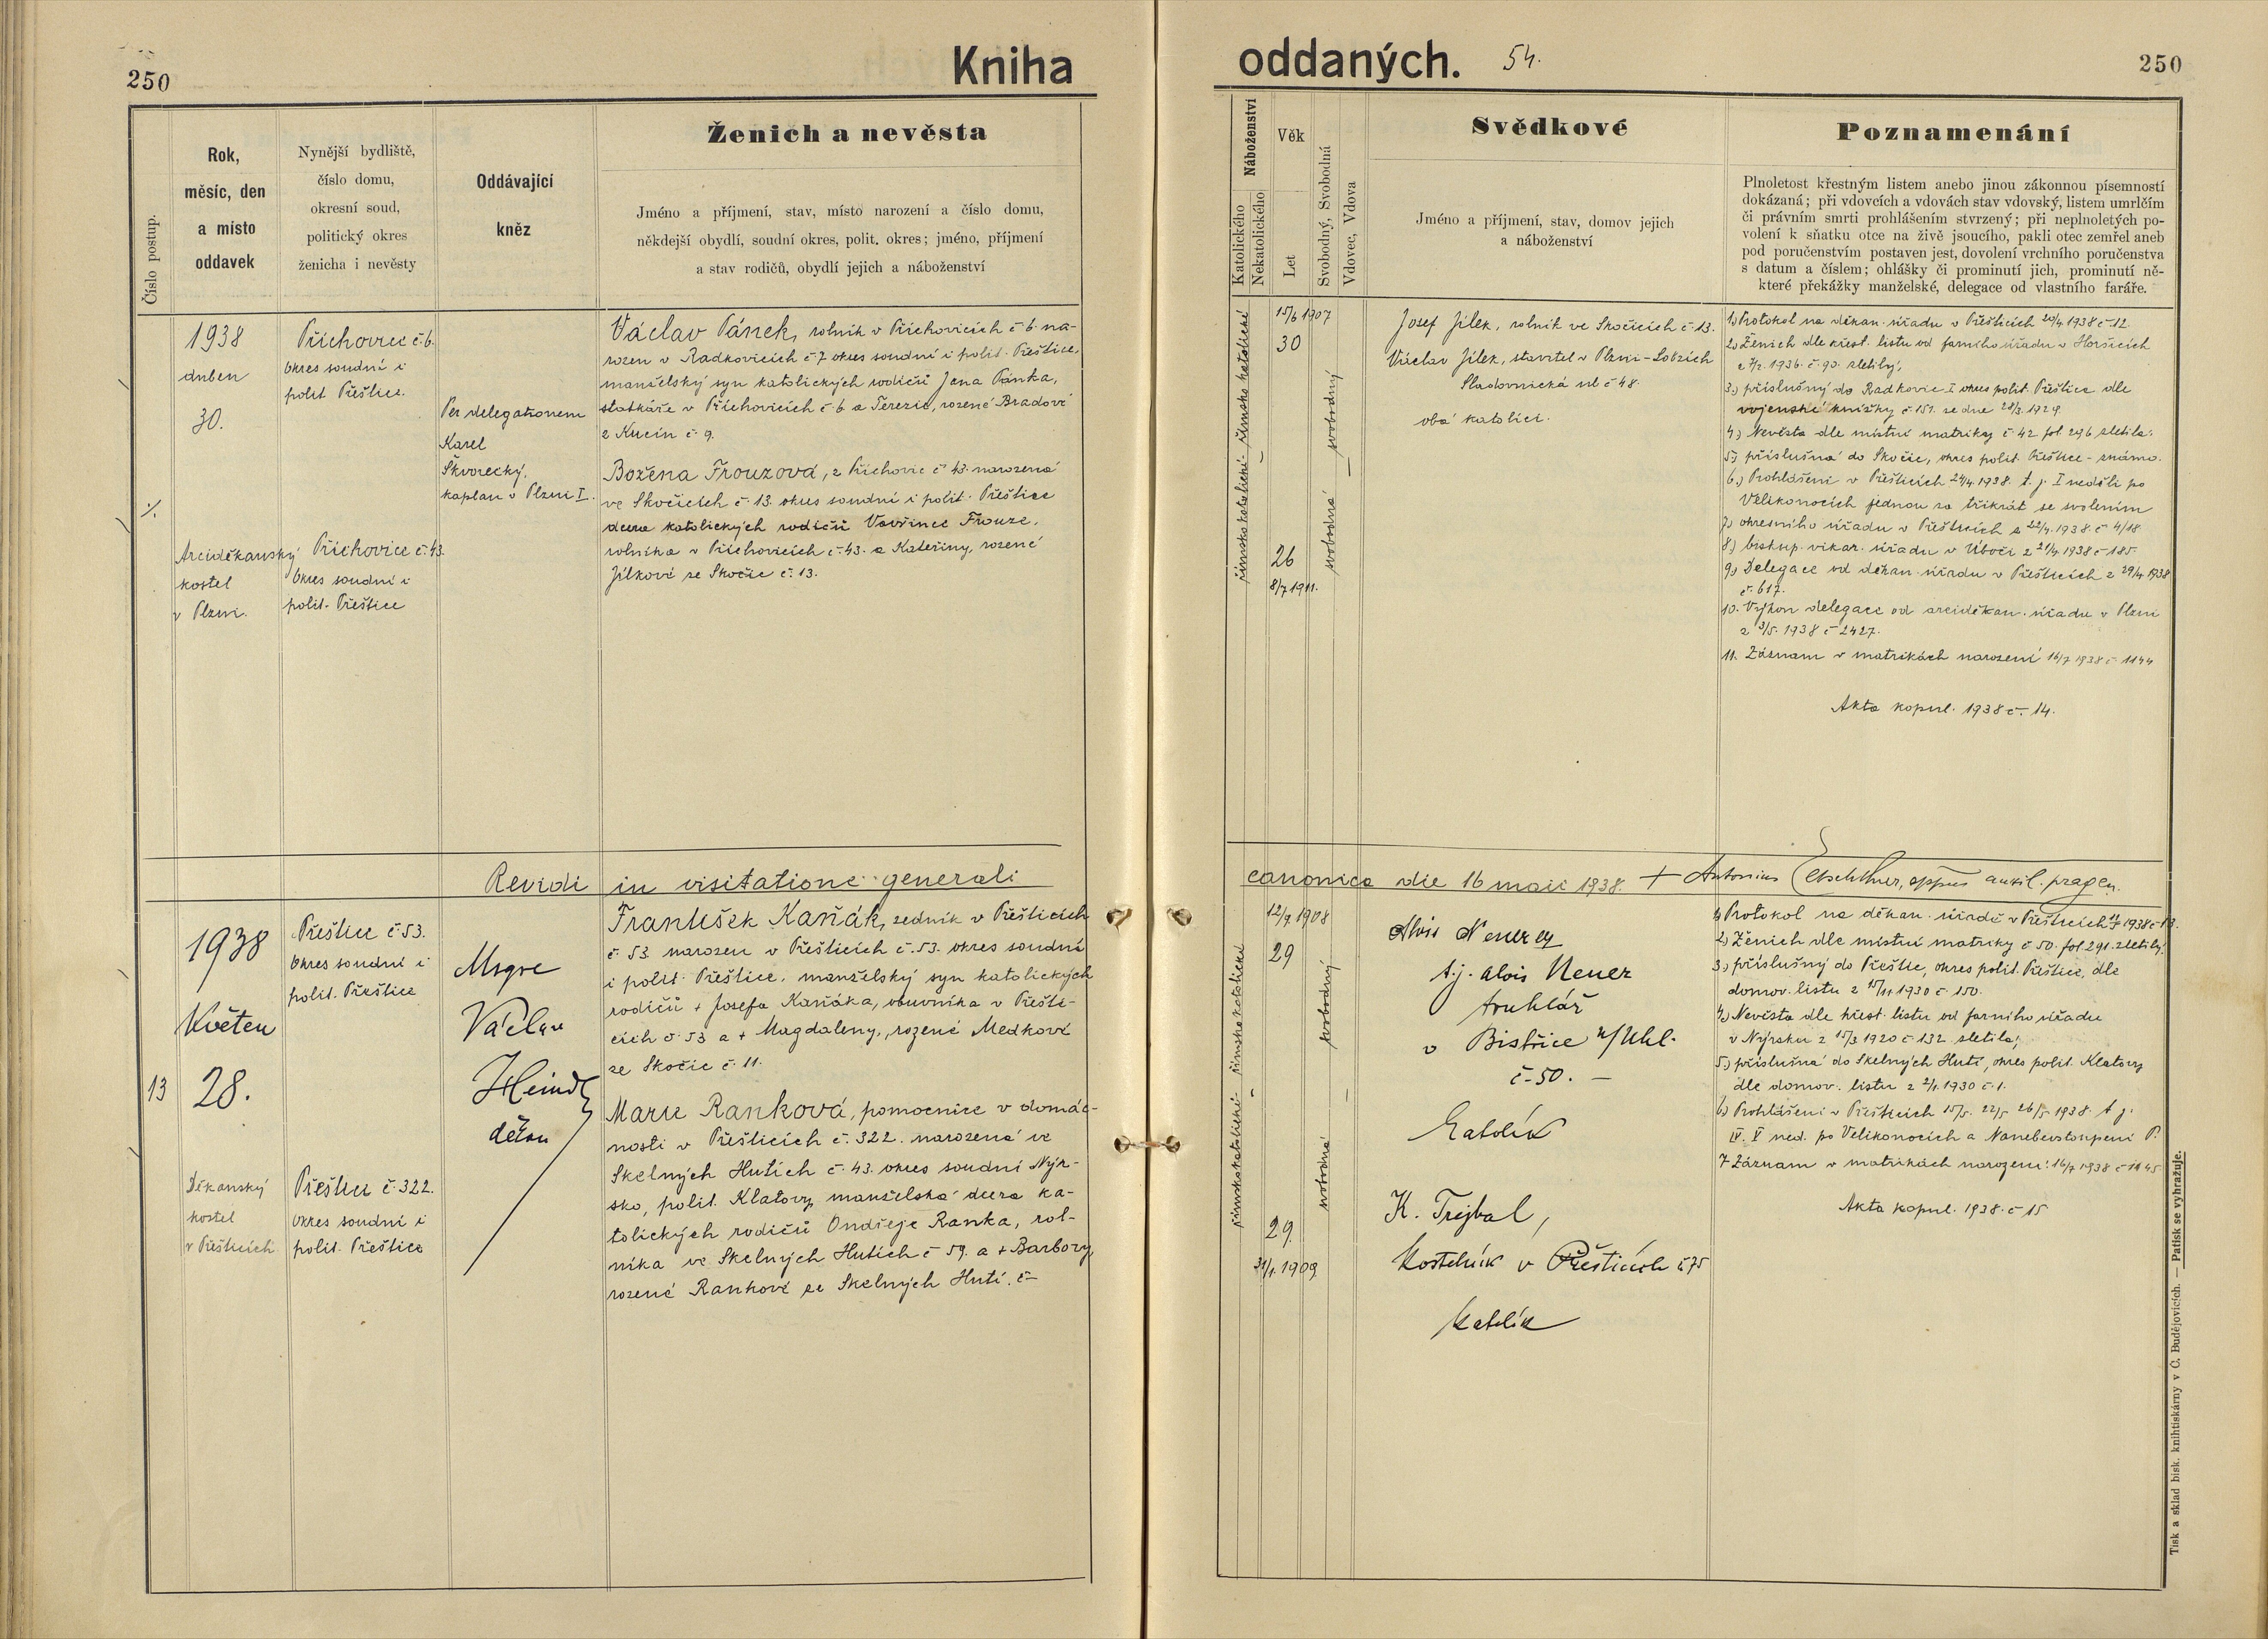 250
Kniha
Číslo postup.
Rok,
měsíc, den
a místo
oddavek
Nynější bydliště,
číslo domu,
okresní soud,
politický okres
ženicha i nevěsty
Oddávající
kněz
Ženich a nevěsta
Jméno a příjmení, stav, místo narození a číslo domu,
někdejší obydlí, soudní okres, polit. okres; jméno, příjmení
a stav rodičů, obydlí jejich a náboženství
1938
duben
30.
Arciděkanský
kostel
v Plzni.
Příchovice č. 6.
Okres soudní i
polit Přeštice.
Příchovice č. 43.
Okres soudní i
polit. Přeštice
Per delegationem
Karel
Škvorecký,
kaplan v Plzni I.
Václav Pánek, rolník v Příchovicích č. 6. na-
rozen v Radkovicích č. 7 okres soudní i polit. Přeštice,
manželský syn katolických rodičů Jana Pánka,
statkáře v Příchovicích č. 6 a Terezie, rozené Bradové
z Kucin č. 9.
Božena Frouzová, z Příchovic č. 43. narozená
ve Skočicích č. 13. okres soudní i polit. Přeštice
dcera katolických rodičů Vavřince Frouze,
rolníka v Příchovicích č. 43. a Kateřiny, rozené
Jílkové ze Skočic č. 13.
Revidi in visitatione generali
13
1938
Květen
28.
Děkanský
kostel
v Přešticích
Přeštice č. 53.
Okres soudní i
polit. Přeštice
Přeštice č. 322.
okres soudní i
polit. Přeštice
Msgre
Václav
Heindl
děkan
František Kaňák, zedník v Přešticích
č. 53 narozen v Přešticích č. 53. okres soudní
i polit. Přeštice, manželský syn katolických
rodičů + Josefa Kaňáka, obuvníka v Přešti-
cích č. 53 a + Magdaleny, rozené Medkové
ze Skočic č. 11.
Marie Ranková, pomocnice v domác-
nosti v Přešticích č. 322. narozená ve
Skelných Hutích č. 43. okres soudní Nýr-
sko, polit. Klatovy manželská dcera ka-
tolických rodičů Ondřeje Ranka, rol-
níka ve Skelných Hutích č 59. a + Barbory,
rozené Rankové ze Skelných Hutí. č
oddaných.
54.
250
Náboženství
Katolického
Nekatolického
Věk
Let
Svobodný, Svobodná
Vdovec, Vdova
Svědkové
Jméno a příjmení, stav, domov jejich
a náboženství
Poznamenání
Plnoletost křestným listem anebo jinou zákonnou písemností
dokázaná; při vdovcích a vdovách stav vdovský, listem umrlčím
či právním smrti prohlášením stvrzený; při neplnoletých po-
volení k sňatku otce na živě jsoucího, pakli otec zemřel aneb
pod poručenstvím postaven jest, dovolení vrchního poručenstva
s datum a číslem; ohlášky či prominutí jich, prominutí ně-
které překážky manželské, delegace od vlastního faráře.
římsko katolické - římsko katolické
15/6 1907
30
26
8/7 1911.
svobodná — svobodný
Josef Jílek, rolník ve Skočicích č. 13.
Václav Jílek, stavitel v Plzni - Lobzích
Sladovnická ul č 48.
oba katolíci.
1.) Protokol na děkan. úřadu v Přešticích 20/4 1938 č 12.
2.) Ženich dle křest. listu od farního úřadu v Horšicích
1936. č. 90. zletilý,
3.) příslušný do Radkovic I okres polit. Přeštice dle
vojenské knížky č 151. ze dne 28/3. 1929.
4.) Nevěsta dle místní matriky č 42 fol. 296 zletilá.
5.) příslušná do Skočic, okres polit. Přeštice - známo.
6.) Prohlášeni v Přešticích 24/4 1938. t. j. I neděli po
Velikonocích jednou za třikrát se svolením
7.) okresního úřadu v Přešticích z 22/4. 1938. č 4/18.
8.) biskup. vikar. úřadu v Úboči z 21/4 1938 č 185.
9.) Delegace od děkan. úřadu v Přešticích z 29/4 1938
č. 617.
10. Výkon delegace od arciděkan. úřadu v Plzni
z 3/5. 1938 č 2427.
11. Záznam v matrikách narození 16/7 1938 č 1144
Akta kopul. 1938 č. 14.
canonica die 16 maii 1938. + Antonius Eltschkner, eppus auxil. pragen.
římskokatolické - římskokatolické
12/7 1908
29
29.
31/1. 1909
svobodná — svobodný
Alois Neuer
t.j. Alois Neuer
truhlář
v Bistřice n/Uhl.
č. 50. —
Katolík
K. Trejbal,
kostelník v Přešticích č 75
katolík
1.) Protokol na děkan. úřadě v Přešticích 1938 č 13.
2.) Ženich dle místní matriky č 50. fol. 291. zletilý.
3.) příslušný do Přeštic, okres polit. Přeštice, dle
domov. listu z 15/11 1930 č. 150.
4.) Nevěsta dle křest. listu od farního úřadu
v Nýrsku z 15/3 1920 č 132. zletilá,
5.) příslušná do Skelných Hutí, okres polit. Klatovy
dle domov. listu z 2/1. 1930 č. 1.
6.) Prohlášeni v Přešticích 15/5. 22/5 26/5 1938. t. j.
IV. V ned. po Velikonocích a Nanebevstoupení P.
7. Záznam v matrikách narození. 16/7 1938 č 1145
Akta kopul. 1938. č 15
Tisk a sklad bisk. knihtiskárny v Č. Budějovicích. — Patisk se vyhražuje.